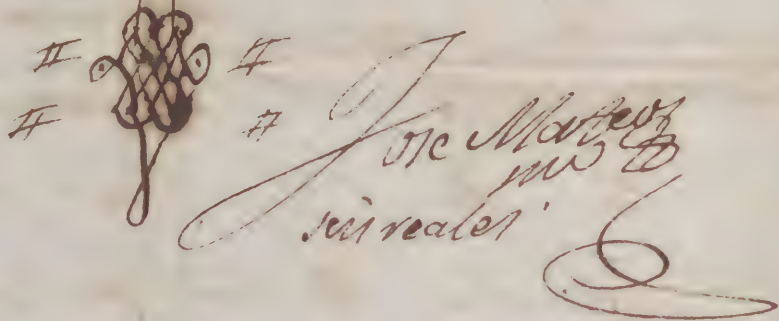 Jose Mateoz
seis reales